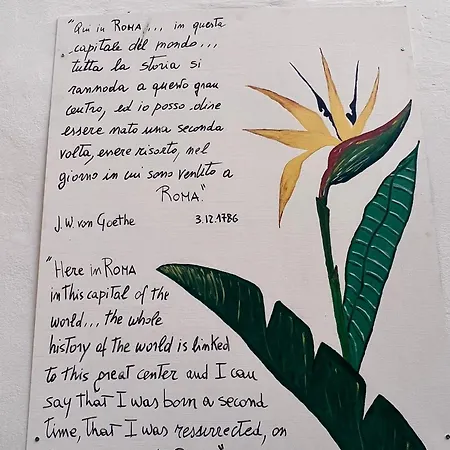 "Qui in ROMA... in questa
capitale del mondo...
tutta la storia si
rannoda a questo gran
centro, ed io posso dire
essere nato una seconda
volta, essere risorto, nel
giorno in cui sono venuto a
ROMA."
J.W. von Goethe 3.12.1786
"Here in ROMA
in this capital of the
world... the whole
history of the world is linked
to this great center and I can
say that I was born a second
time, that I was ressurrected, on